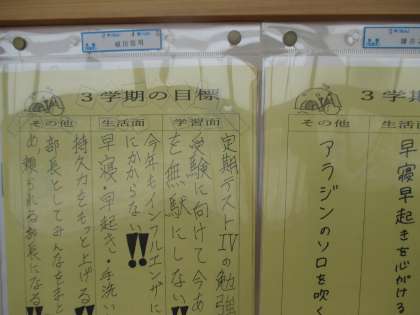 3学期の目標
学習面
生活面
その他
定期テストⅣの勉強
受験に向けて今あ
を無駄にしない!!
今年もインフルエンザに
にかからない!!
早寝・早起き・手洗い
持久力をもっと上げる!!
部長としてみんなをまと
め頼られる部長になる!!
3学
生活面
その他
早寝早起きを心がける
アラジンのソロを吹く